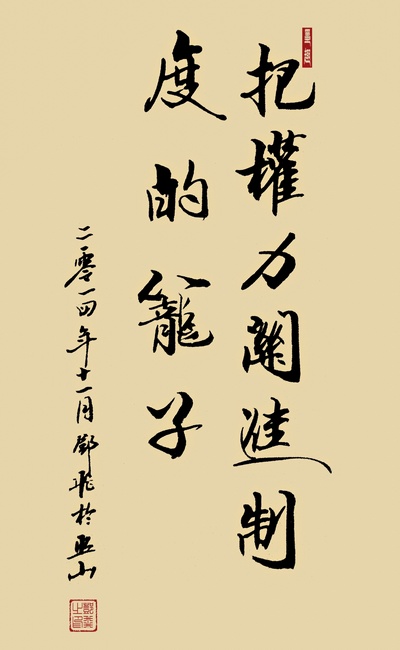 把權力關進制
度的籠子
二零一四年十一月鄧飛於山